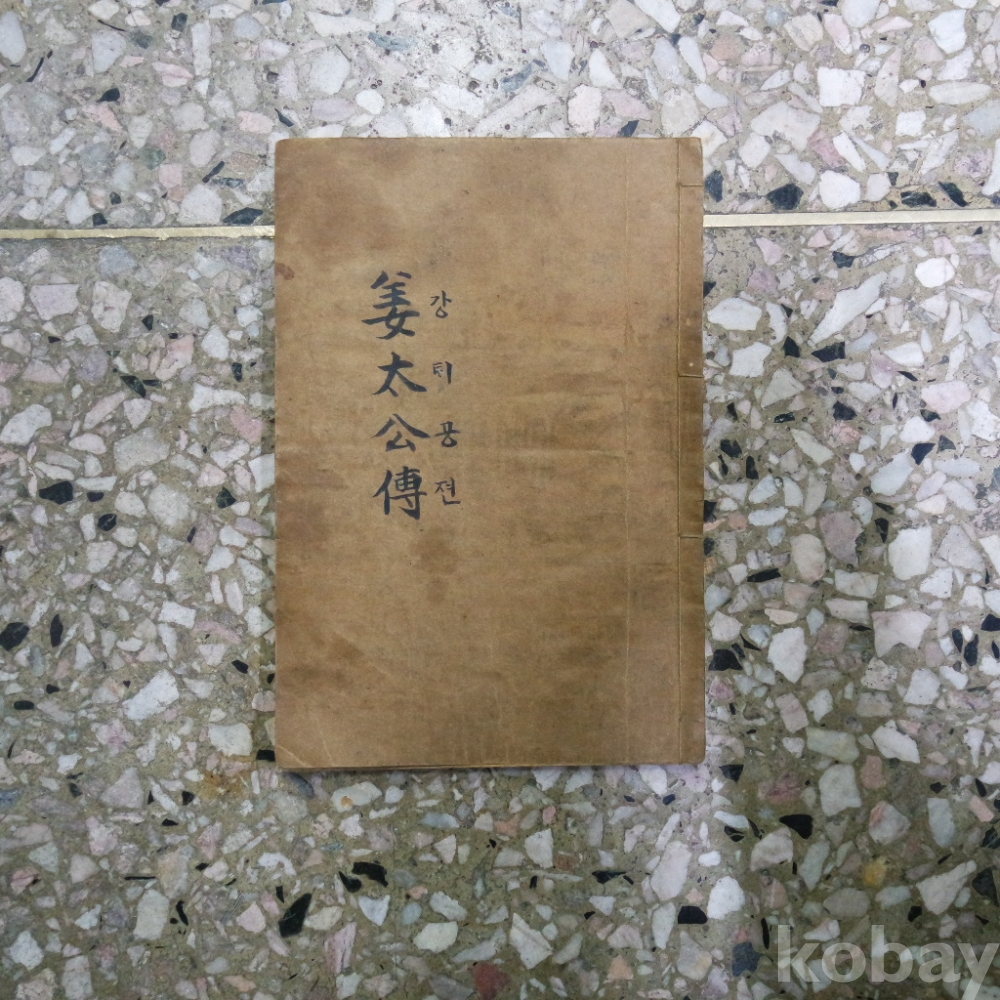 姜太公傳
강티공젼
kobay